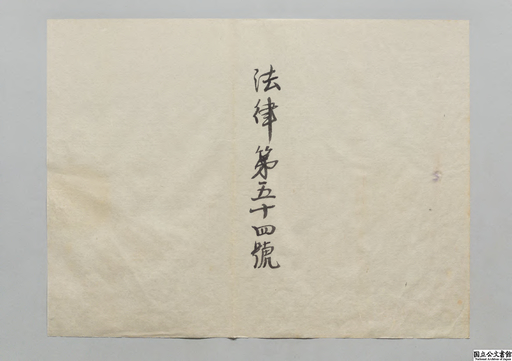 法律第五十四號
国立公文書館
National Archives of Japan